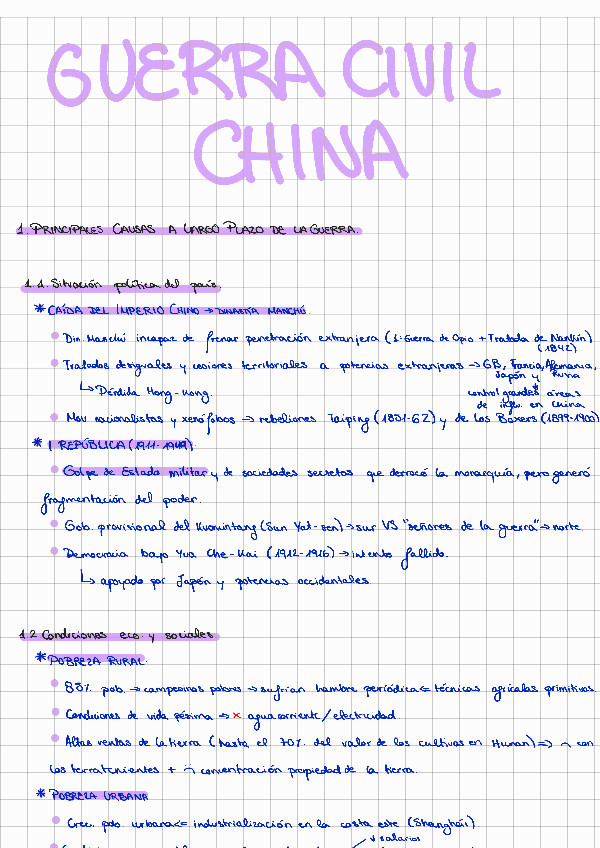 GUERRA CIVIL
CHINA
1 PRINCIPALES CAUSAS A LARGO PLAZO DE LA GUERRA.
1.1. Situación política del país
* CAÍDA DEL IMPERIO CHINO → DINASTÍA MANCHÚ.
Din. Manchú incapaz de frenar penetración extranjera (1ª Guerra de Opio + Tratado de Nankín)
(1842)
Tratados desiguales y cesiones territoriales a potencias extranjeras → GB, Francia, Alemania,
Japón y Rusia
↳ Pérdida Hong-Kong.
control grandes áreas
de infl. en China
Mov nacionalistas y xenófobos → rebeliones Taiping (1851-62) y de los Bóxers (1899-1900)
* I REPÚBLICA (1911-1949)
Golpe de Estado militar y de sociedades secretas que derrocó la monarquía, pero generó
fragmentación del poder.
Gob. provisional del Kuomintang (Sun Yat-sen) → sur VS "señores de la guerra" → norte.
Democracia bajo Yua Che-Kai (1912-1916) → intento fallido.
↳ apoyado por Japón y potencias occidentales
1.2 Condiciones eco. y sociales
* POBREZA RURAL.
85% pob. → campesinos pobres → sufrían hambre periódica ⇐ técnicas agrícolas primitivas
Condiciones de vida pésima → × agua corriente / electricidad
Altas rentas de la tierra (hasta el 70% del valor de los cultivos en Hunan) ⇒ con
los terratenientes + concentración propiedad de la tierra.
* POBREZA URBANA
Crec. pdo urbana ⇐ industrialización en la costa este (Shanghái).
salarios